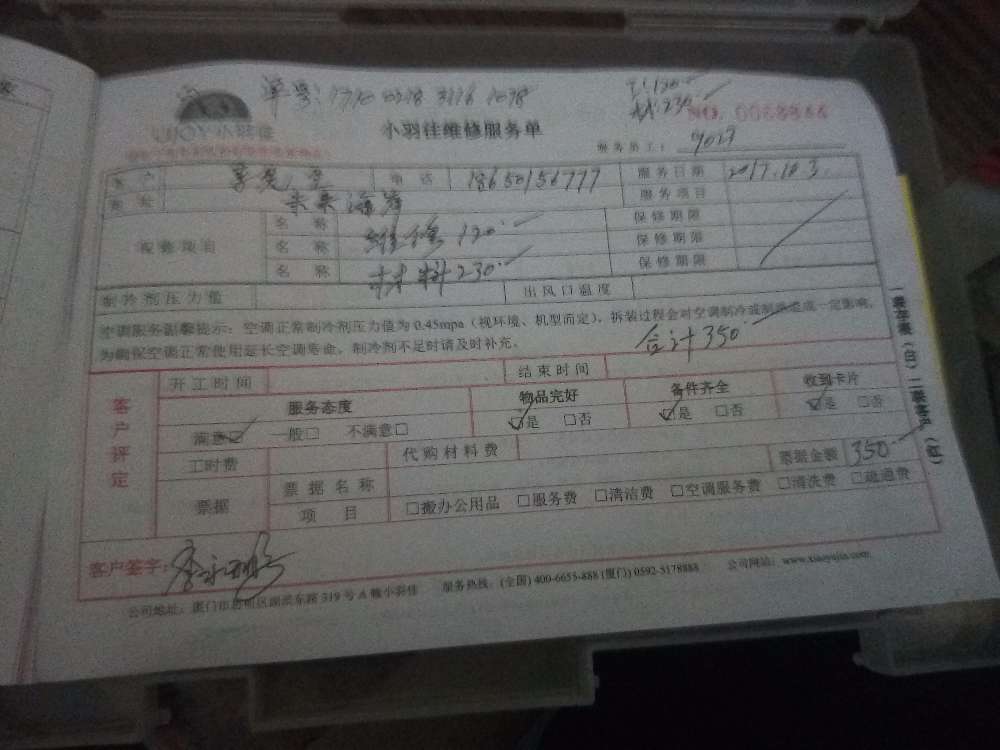 单号:1710 0218 3116 1098
工:120.—
材:230.—
NO. 0068844
小羽佳维修服务单
服务员工: 9027
客户 电话 18650156777 服务日期 2017.10.3.
地址 未来海岸 服务项目
名称 维修 120.— 保修期限
报修项目 名称 保修期限
名称 材料 230.— 保修期限
制冷剂压力值 出风口温度
空调服务温馨提示:空调正常制冷剂压力值为0.45mpa(视环境、机型而定),拆装过程会对空调制冷或制热造成一定影响,
为确保空调正常使用延长空调寿命,制冷剂不足时请及时补充。
合计350.—
开工时间 结束时间
客户评定
服务态度 物品完好 备件齐全 收到卡片
满意☑ 一般□ 不满意□ ☑是 □否 ☑是 □否 ☑是 □否
工时费 代购材料费 票据金额 350.—
票据 票据名称
项目 □搬办公用品 □服务费 □清洁费 □空调服务费 □清洗费 □疏通费
客户签字:
公司地址:厦门市思明区湖滨东路319号A幢小羽佳 服务热线:(全国)400-6655-888(厦门)0592-5178888 公司网站:www.xiaoyujia.com
一联存根(白)二联客户(红)